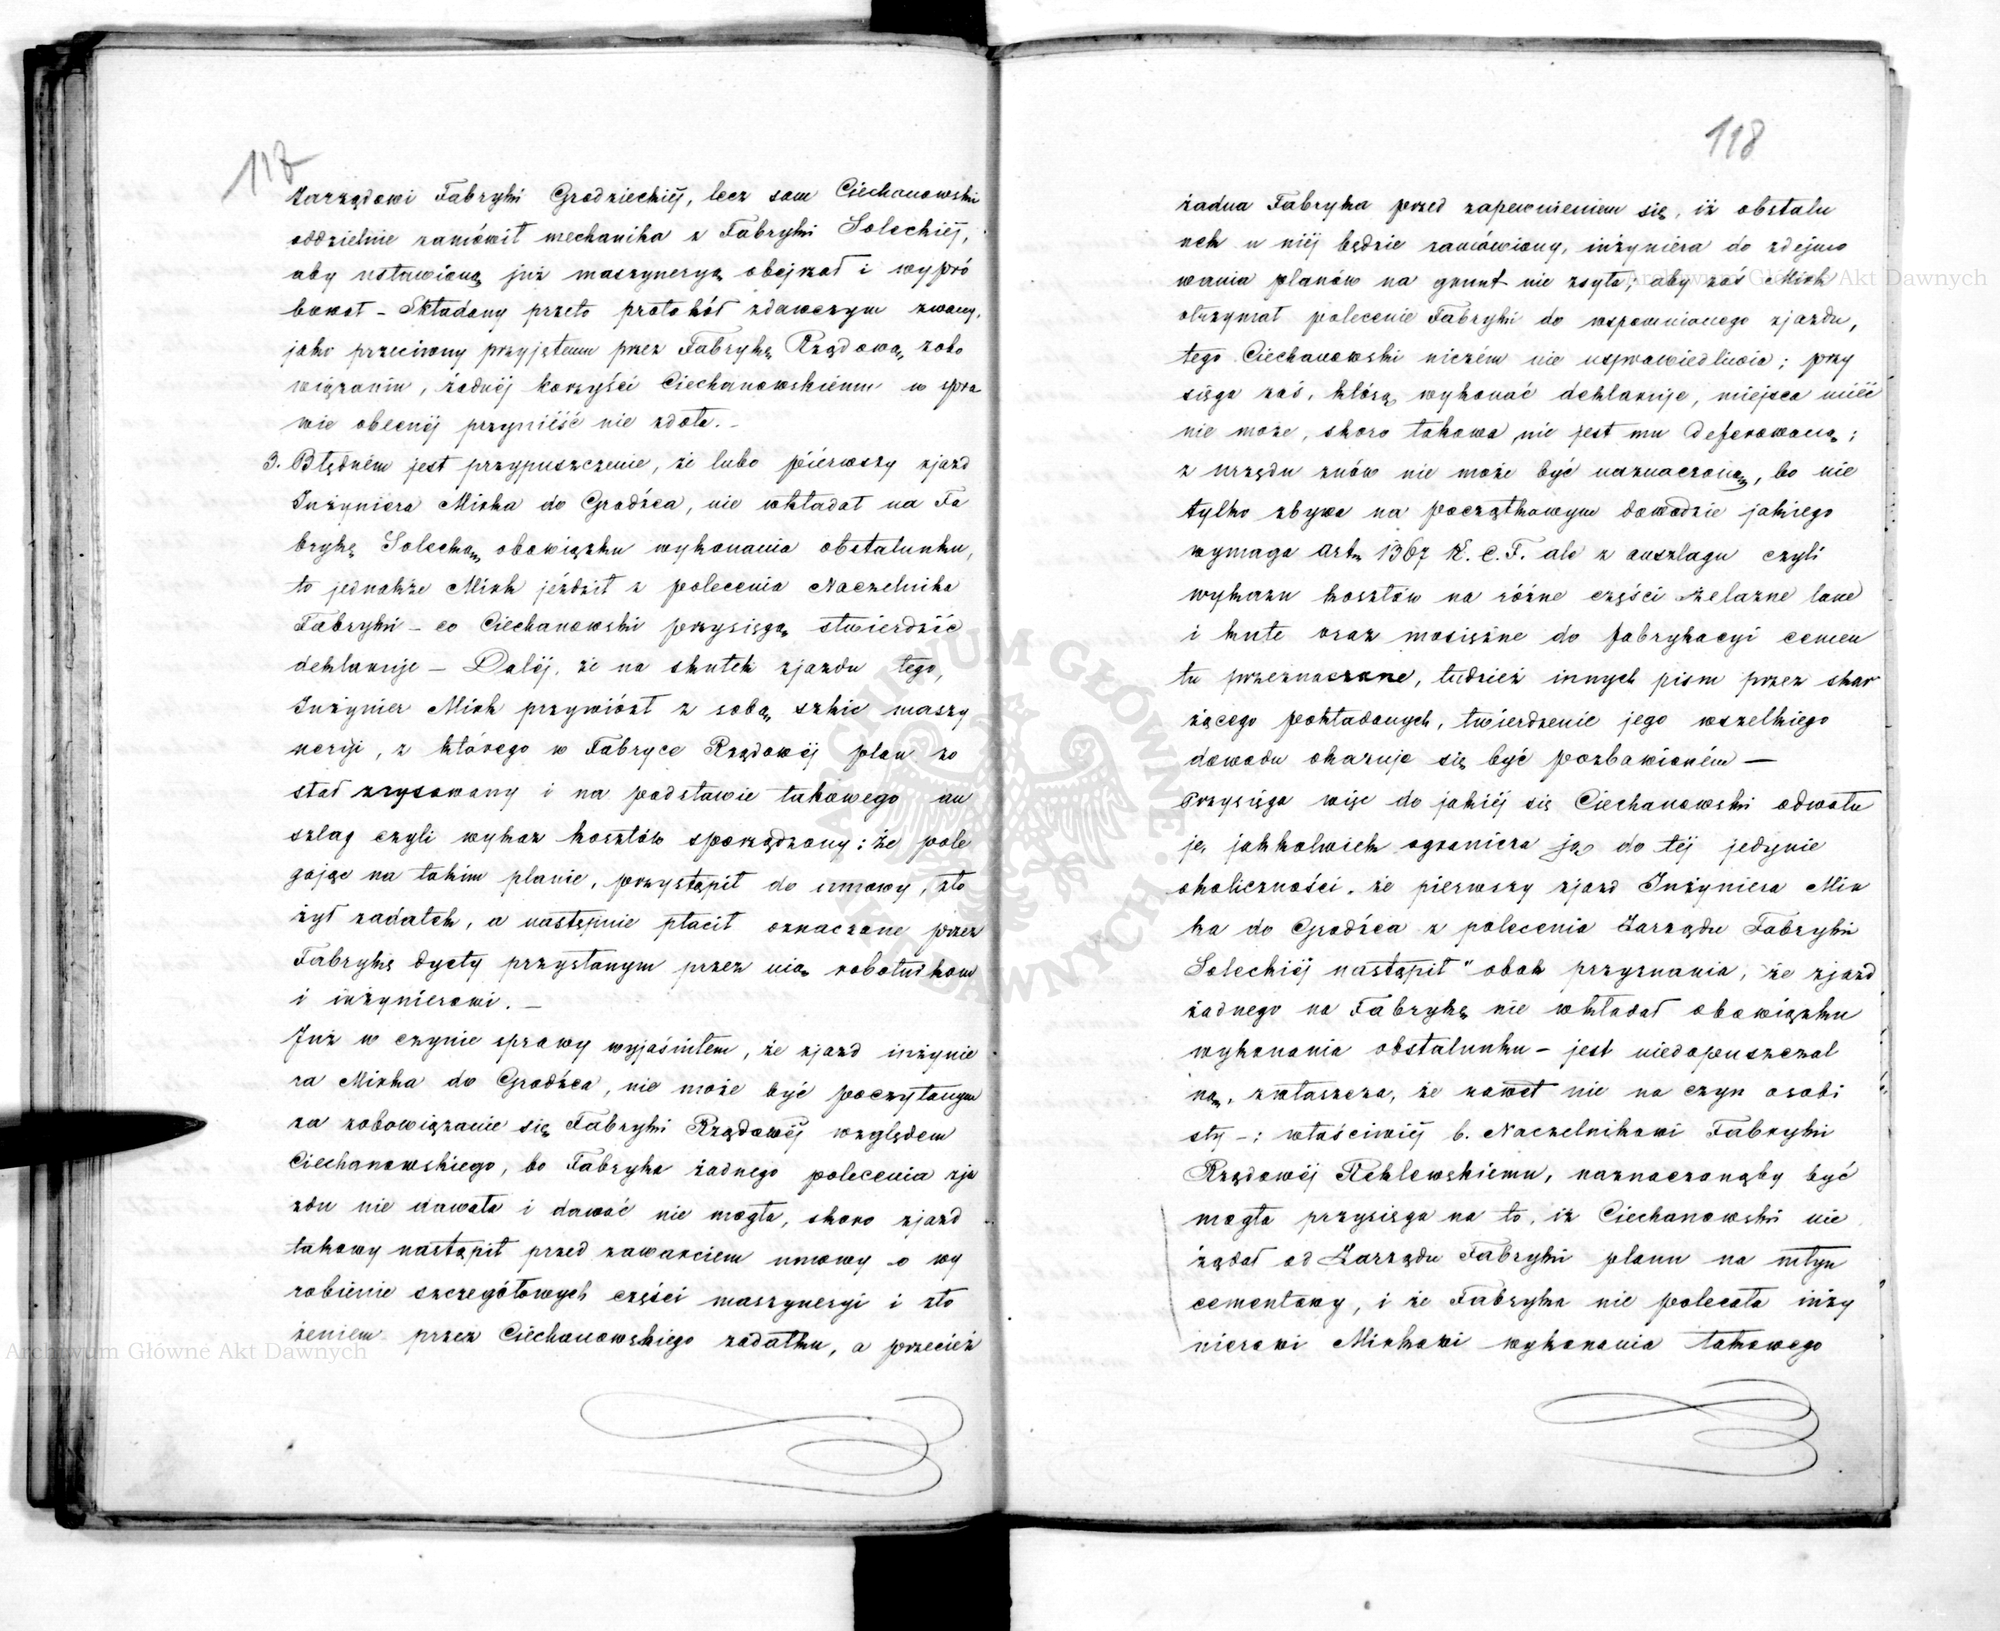 117
Zarządowi Fabryki Grodzieckiéj, lecz sam Ciechanowski
oddzielnie zamówił mechanika z Fabryki Soleckiéj,
aby ustawioną już maszyneryą obejrzał i wypró
bował – Składany przeto protokół zdawczym zwany,
jako przeciwny przyjętemu przez Fabrykę Rządową zobo
wiązaniu, żadnéj korzyści Ciechanowskiemu w spra
wie obecnéj przynieść nie zdoła. –
3. Błędném jest przypuszczenie, że lubo piérwszy zjazd
Inżyniera Mirka do Grodźca, nie wkładał na Fa
brykę Solecką obowiązku wykonania obstalunku,
to jednakże Mirk jéździł z polecenia Naczelnika
Fabryki – co Ciechanowski przysięgą stwierdzić
deklaruje – Daléj, że na skutek zjazdu tego,
Inżynier Mirk przywiózł z sobą szkic maszy
neryi, z którego w Fabryce Rządowéj plan zo
stał zrysowany i na podstawie takowego au
szlag czyli wykaz kosztów sporządzony: że pole
gając na takim planie, przystąpił do umowy, zło
żył zadatek, a następnie płacił oznaczone przez
Fabrykę dyety przysłanym przez nią robotnikom
i inżynierowi. –
Już w czynie sprawy wyjaśniłem, że zjazd inżynie
ra Mirka do Grodźca, nie może być poczytanym
za zobowiązanie się Fabryki Rządowéj względem
Ciechanowskiego, bo Fabryka żadnego polecenia zja
zdu nie dawała i dawać nie mogła, skoro zjazd
takowy nastąpił przed zawarciem umowy o wy
robienie szczegółowych części maszyneryi i zło
żeniem przez Ciechanowskiego zadatku, a przecież
118
żadna Fabryka przed zapewnieniem się, iż obstalu
nek u niéj będzie zamówiony, inżyniera do zdejmo
wania planów na grunt nie zsyła; aby zaś Mirk
otrzymał polecenie Fabryki do wspomnionego zjazdu,
tego Ciechanowski niczém nie usprawiedliwia; przy
sięga zaś, którą wykonać deklaruje, miejsca mieć
nie może, skoro takowa nie jest mu deferowaną;
z urzędu znów nie może być naznaczoną, bo nie
tylko zbywa na początkowym dowodzie jakiego
wymaga Art. 1367 K. C. F. ale z auszlagu czyli
wykazu kosztów na różne części żelazne lane
i kute oraz mosiężne do fabrykacyi cemen
tu przeznaczone, tudzież innych pism przez skar
żącego pokładanych, twierdzenie jego wszelkiego
dowodu okazuje się być pozbawioném –
Przysięga więc do jakiéj się Ciechanowski odwołu
je, jakkolwiek ogranicza ją do téj jedynie
okoliczności, że pierwszy zjazd Inżyniera Mir
ka do Grodźca z polecenia Zarządu Fabryki
Soleckiéj nastąpił" obok przyznania, że zjazd
żadnego na Fabrykę nie wkładał obowiązku
wykonania obstalunku – jest niedopuszczal
ną, zwłaszcza, że nawet nie na czyn osobi
sty –: właściwiéj b. Naczelnikowi Fabryki
Rządowéj Rchlewskiemu, naznaczonąby być
mogła przysięga na to, iż Ciechanowski nie
żądał od Zarządu Fabryki planu na młyn
cementowy, i że Fabryka nie polecała inży
nierowi Mirkowi wykonania takowego
Archiwum Główne Akt Dawnych
Archiwum Główne Akt Dawnych
ARCHIWUM GŁÓWNE AKT DAWNYCH